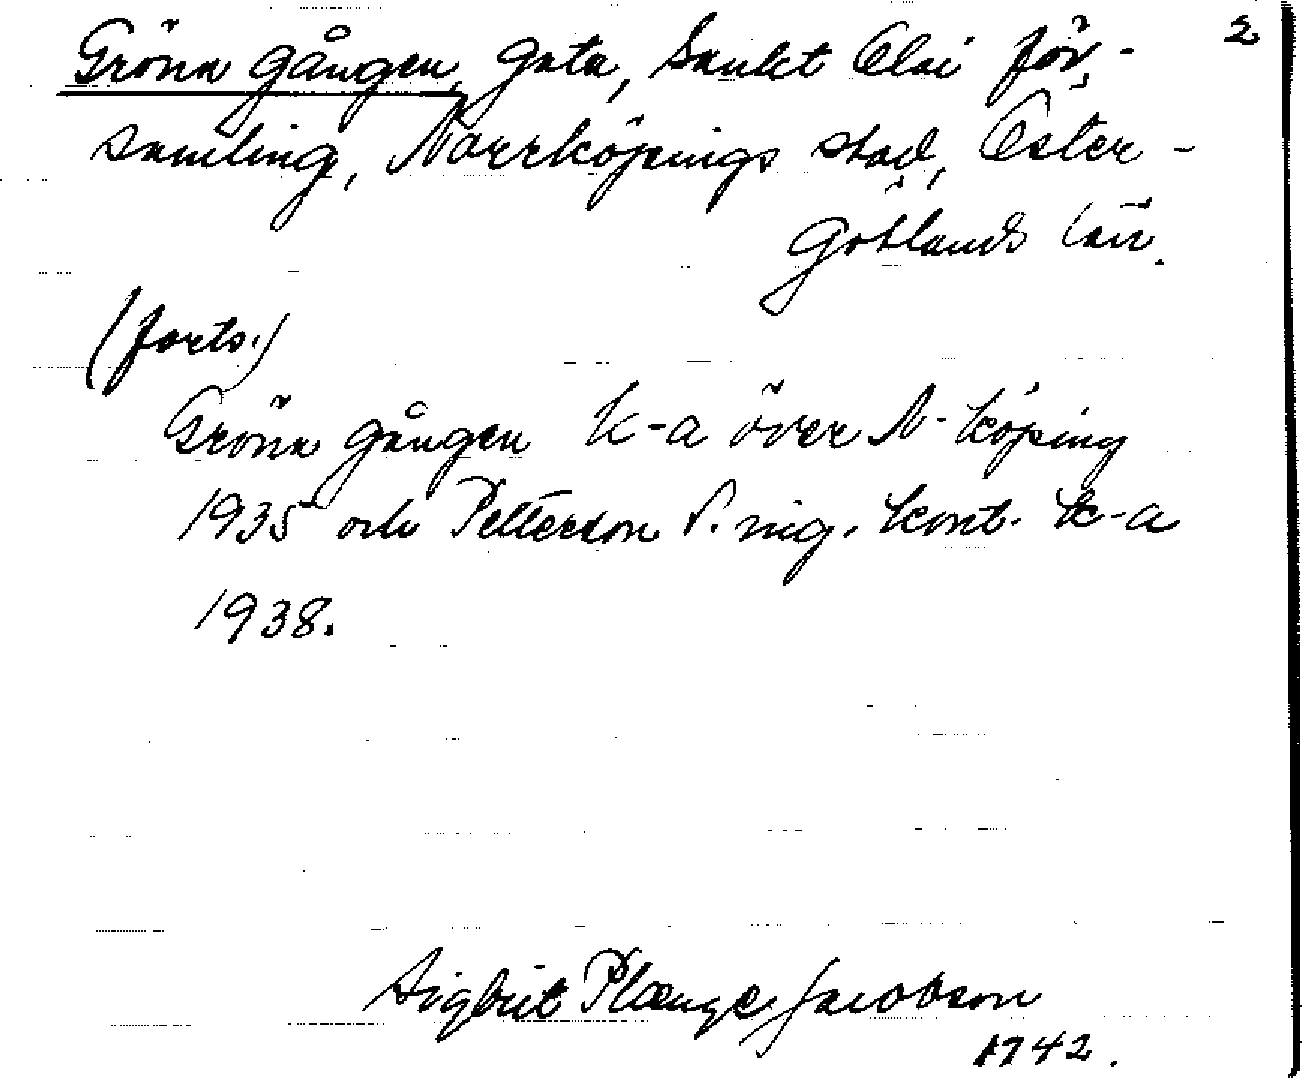 2
Gröna gången, gata, Sankt Olai för-
samling, Norrköpings stad, Öster-
götlands län.
(forts.)
Gröna gången k-a över N-köping
1935 och Petterson P. mg. kont. k-a
1938.
Sigbrit Plænge Jacobson
1942.